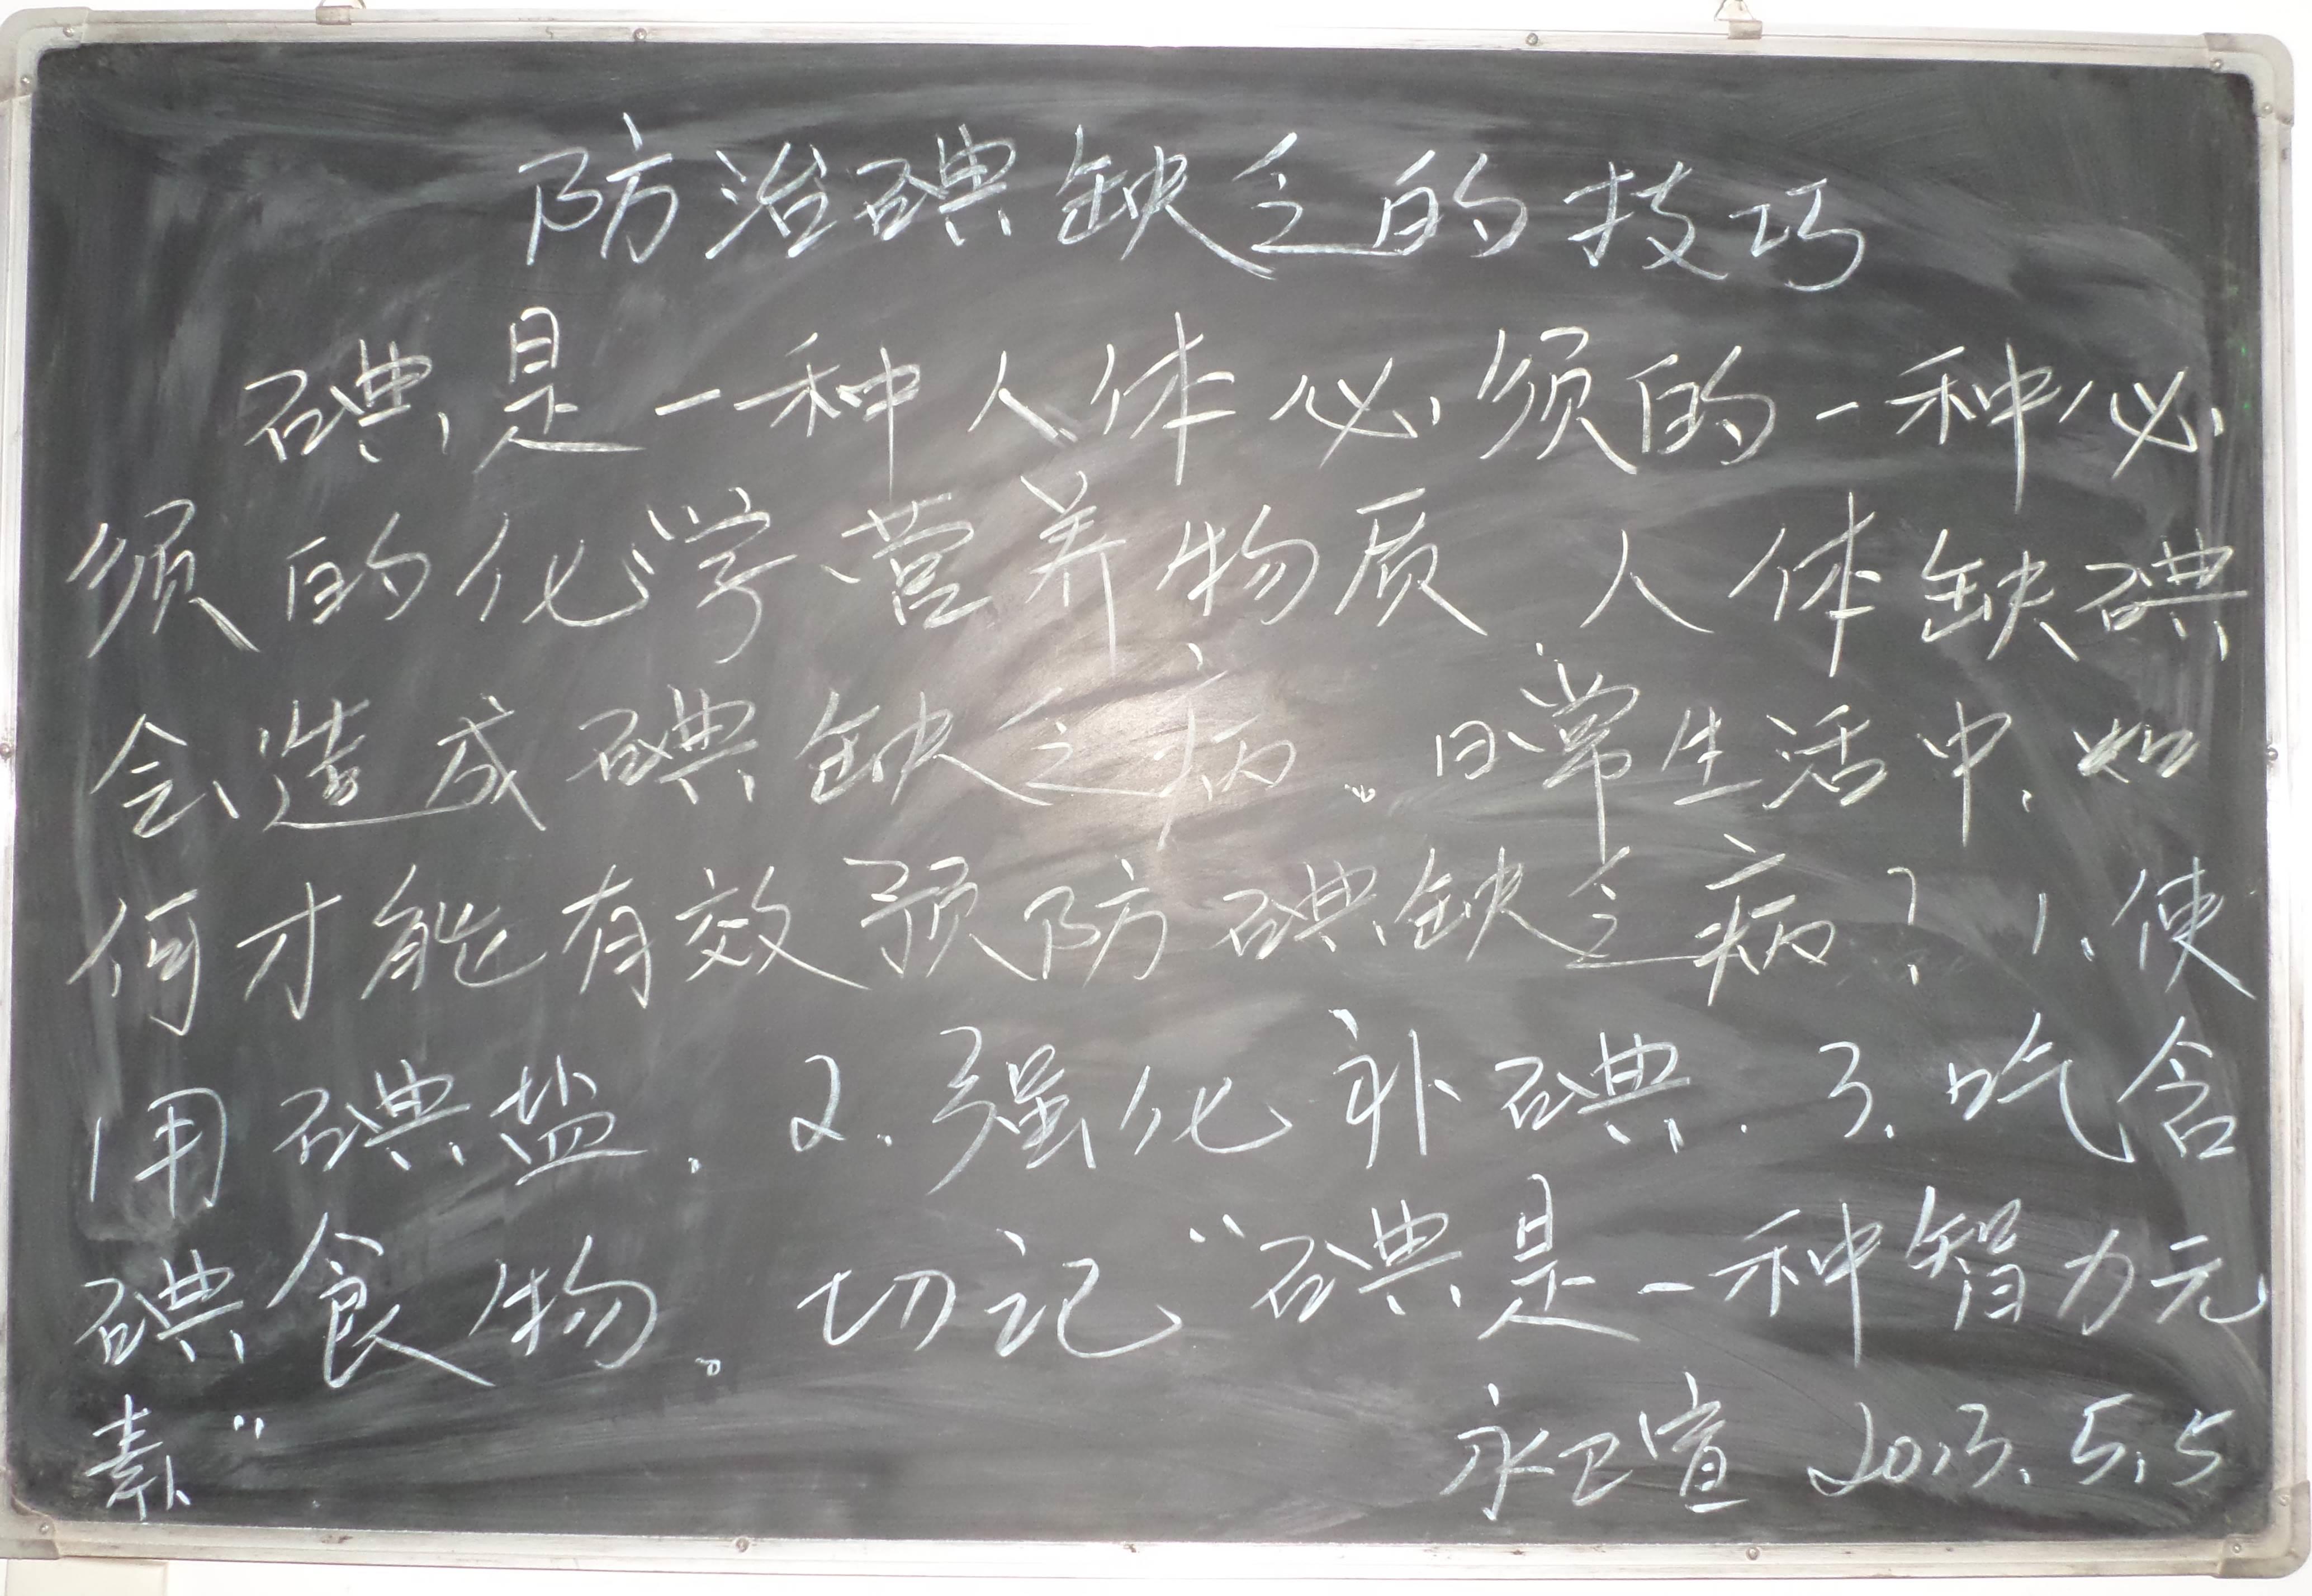 防治碘缺乏的技巧
碘是一种人体必须的一种必
须的化学营养物质.人体缺碘
会造成碘缺乏病。日常生活中.如
何才能有效预防碘缺乏病?1.使
用碘盐.2.强化补碘.3.吃含
碘食物。切记“碘是一种智力元
素”
永卫宣 2013.5.5